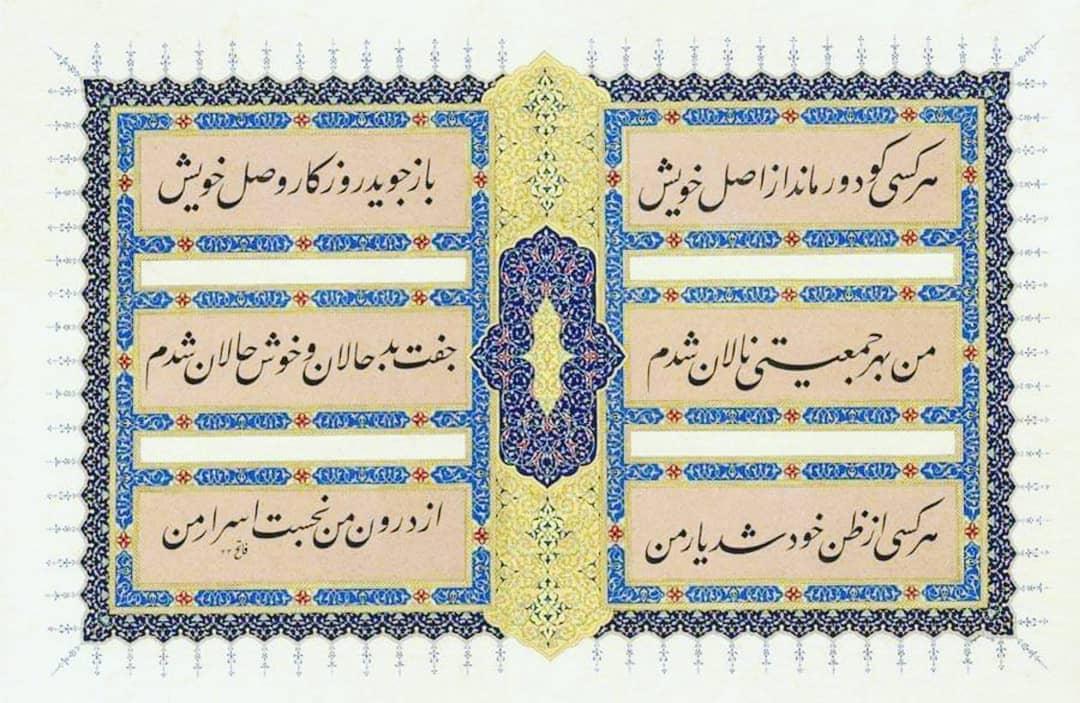 هر کسی کو دور ماند از اصل خویش
باز جوید روزگار وصل خویش
من بهر جمعیتی نالان شدم
جفت بدحالان و خوش حالان شدم
هر کسی از ظن خود شد یار من
از درون من نجست اسرار من
فاتح